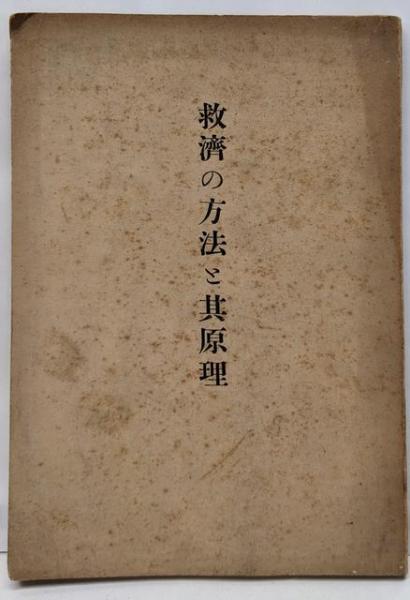 救濟の方法と其原理